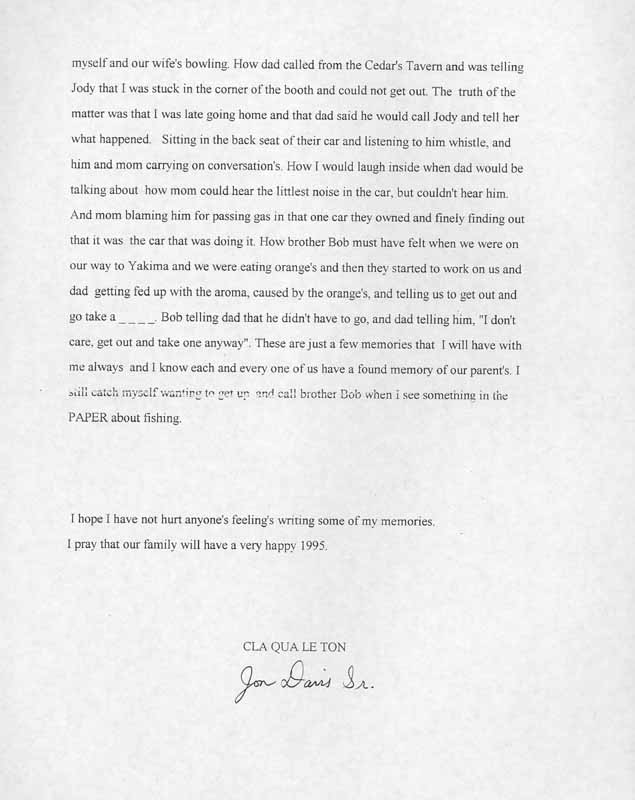 myself and our wife's bowling. How dad called from the Cedar's Tavern and was telling
Jody that I was stuck in the corner of the booth and could not get out. The truth of the
matter was that I was late going home and that dad said he would call Jody and tell her
what happened. Sitting in the back seat of their car and listening to him whistle, and
him and mom carrying on conversation's. How I would laugh inside when dad would be
talking about how mom could hear the littlest noise in the car, but couldn't hear him.
And mom blaming him for passing gas in that one car they owned and finely finding out
that it was the car that was doing it. How brother Bob must have felt when we were on
our way to Yakima and we were eating orange's and then they started to work on us and
dad getting fed up with the aroma, caused by the orange's, and telling us to get out and
go take a _ _ _ _. Bob telling dad that he didn't have to go, and dad telling him, "I don't
care, get out and take one anyway". These are just a few memories that I will have with
me always and I know each and every one of us have a found memory of our parent's. I
still catch myself wanting to get up and call brother Bob when I see something in the
PAPER about fishing.
I hope I have not hurt anyone's feeling's writing some of my memories.
I pray that our family will have a very happy 1995.
CLA QUA LE TON
Jon Davis Sr.